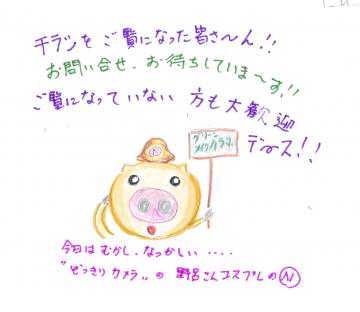 チラシを ご覧になった皆さ～ん!!
お問い合せ、お待ちしていま～す!!
ご覧になっていない 方も大歓迎
デース!!
グリーン
今日はむかし、なつかしい ････
"どっきりカメラ"の 野呂さんコスプレの N